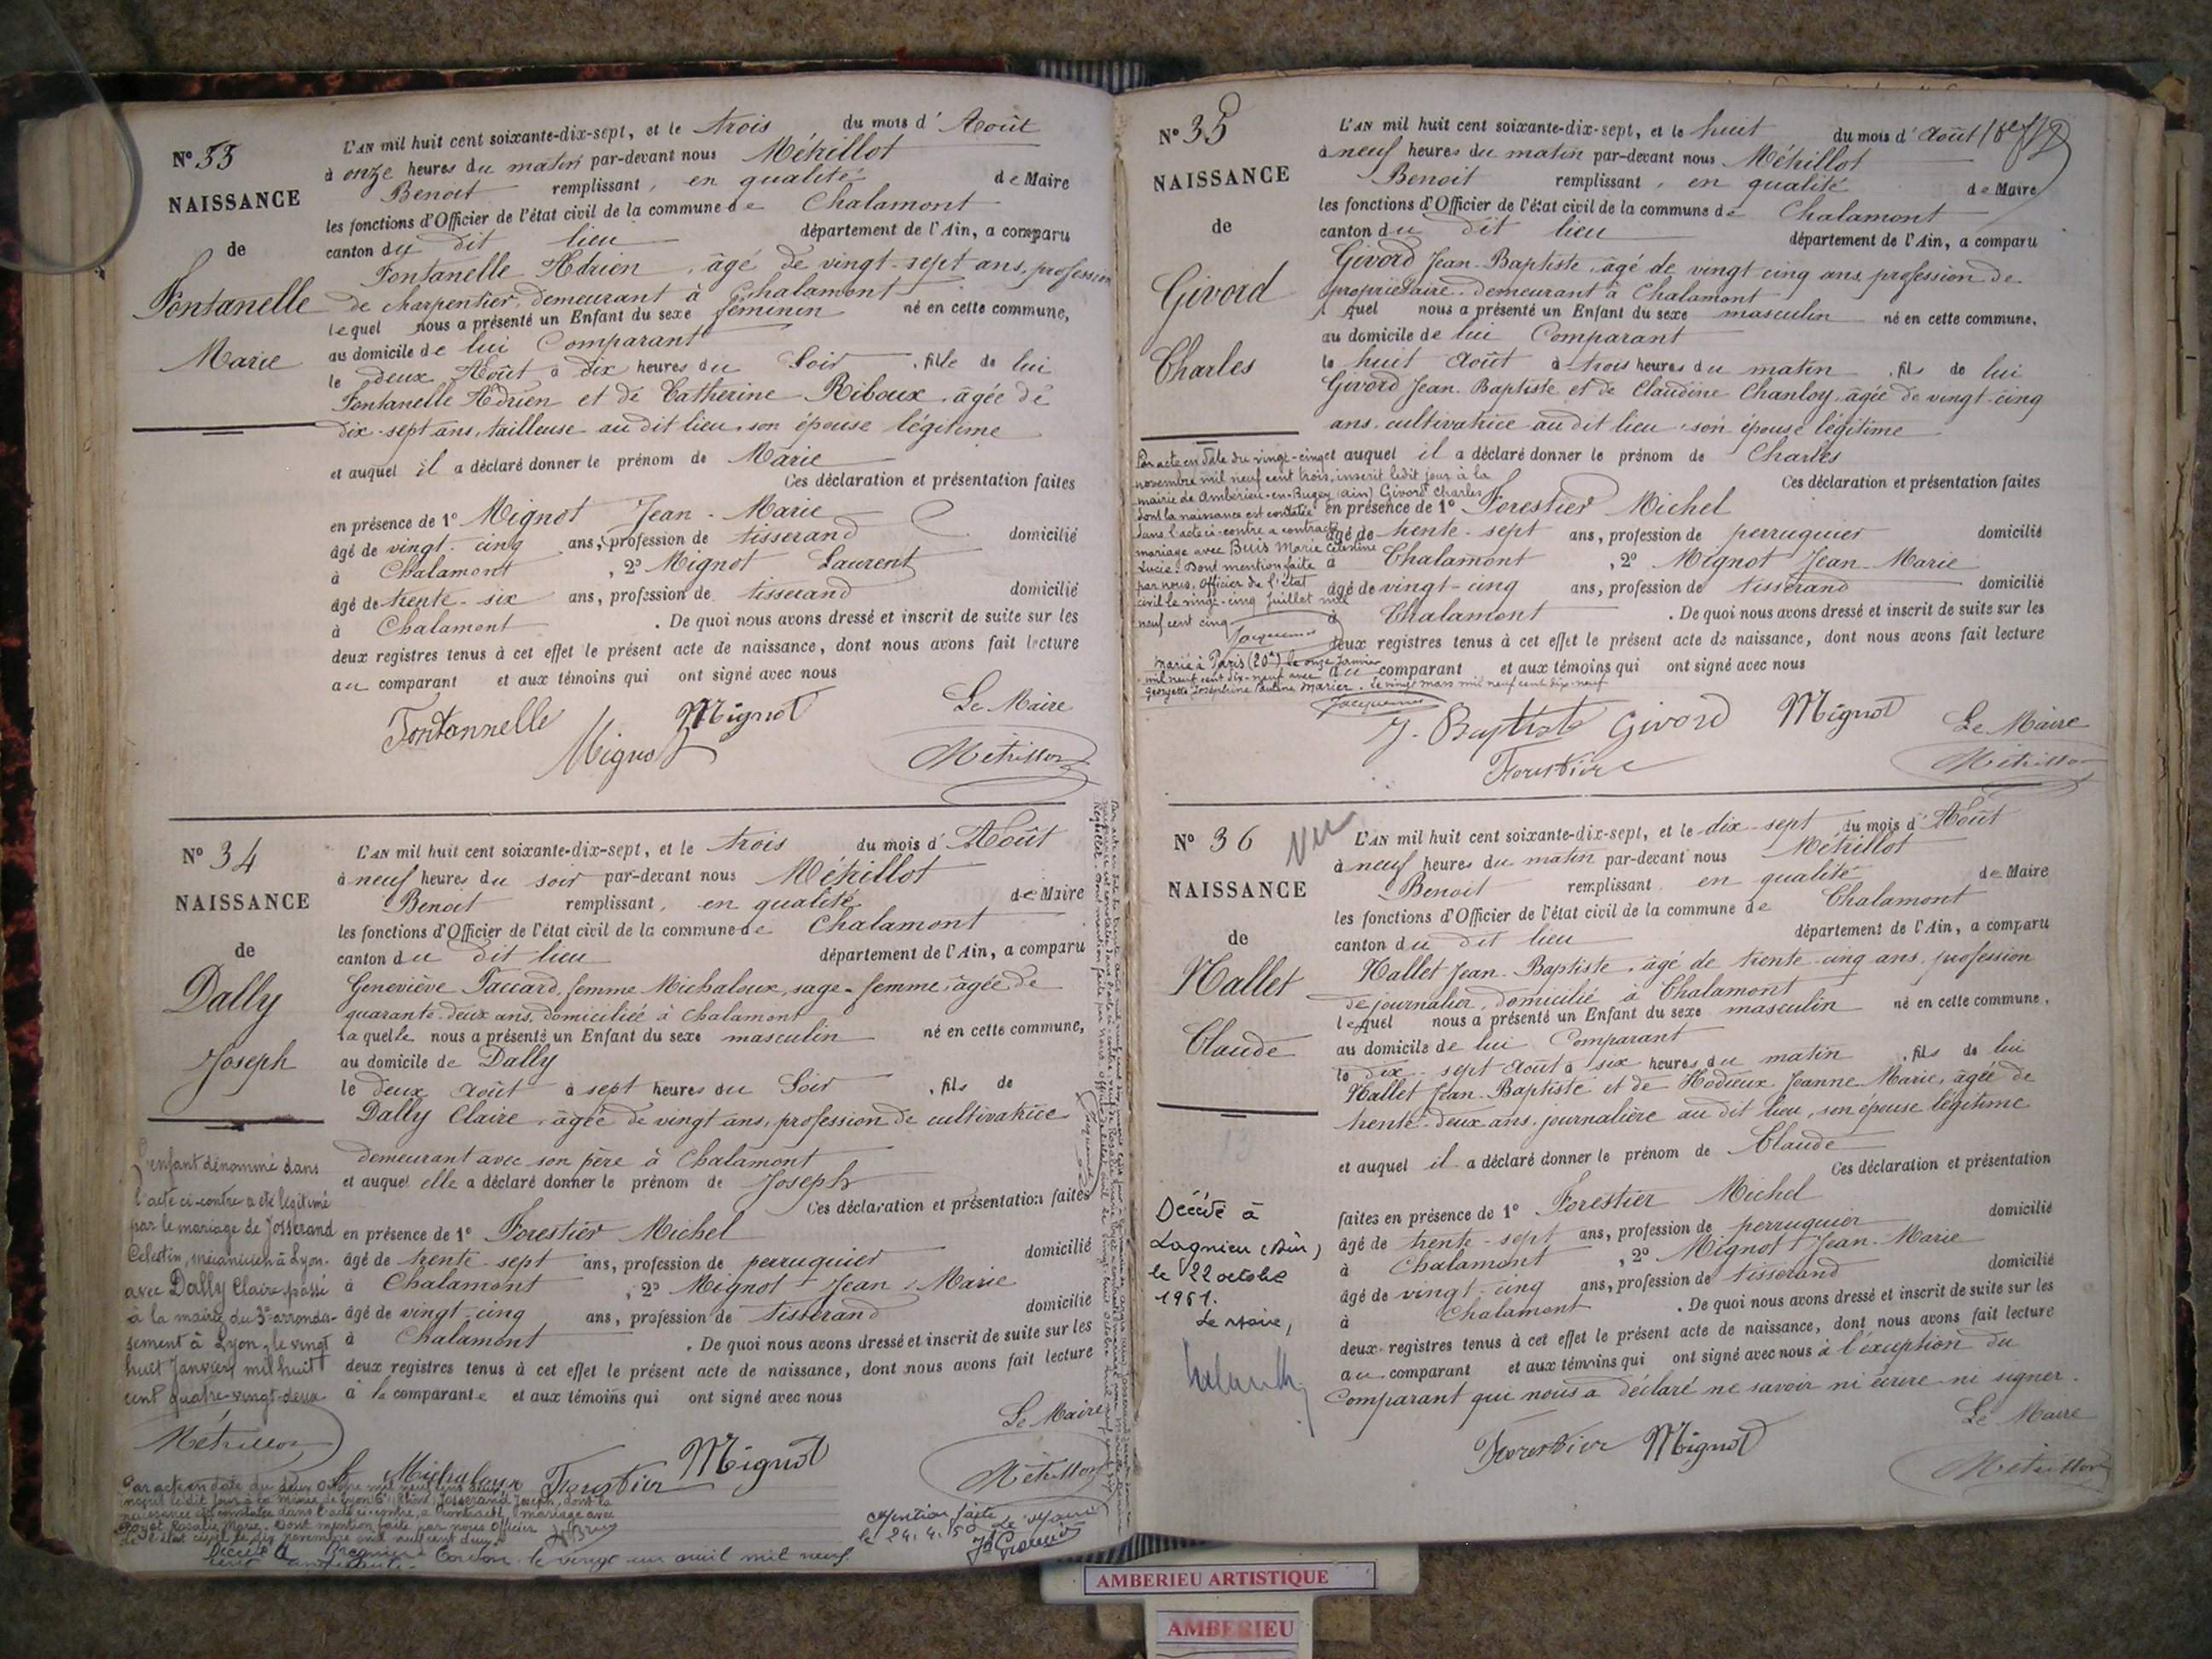 N° 33
NAISSANCE
de
Fontanelle
Marie
L'AN mil huit cent soixante-dix-sept, et le trois du mois d'Août
à onze heures du matin par-devant nous Métrillot
Benoit remplissant, en qualité de Maire
les fonctions d'Officier de l'état civil de la commune de Chalamont
canton du dit lieu département de l'Ain, a comparu
Fontanelle Adrien, âgé de vingt-sept ans, profession
de charpentier, demeurant à Chalamont
lequel nous a présenté un Enfant du sexe féminin né en cette commune,
au domicile de lui Comparant
le deux Août à dix heures du Soir, fille de lui
Fontanelle Adrien et de Catherine Riboux, âgée de
dix-sept ans, tailleuse au dit lieu, son épouse légitime
et auquel il a déclaré donner le prénom de Marie
Ces déclaration et présentation faites
en présence de 1° Mignot Jean-Marie
âgé de vingt-cinq ans, profession de tisserand domicilié
à Chalamont, 2° Mignot Laurent
âgé de trente-six ans, profession de tisserand domicilié
à Chalamont. De quoi nous avons dressé et inscrit de suite sur les
deux registres tenus à cet effet le présent acte de naissance, dont nous avons fait lecture
au comparant et aux témoins qui ont signé avec nous
Fontannelle Mignot Mignot Le Maire
Métrillot
N° 34
NAISSANCE
de
Dally
Joseph
L'AN mil huit cent soixante-dix-sept, et le trois du mois d'Août
à neuf heures du soir par-devant nous Métrillot
Benoit remplissant, en qualité de Maire
les fonctions d'Officier de l'état civil de la commune de Chalamont
canton du dit lieu département de l'Ain, a comparu
Geneviève Taccard, femme Michaloux, sage-femme, âgée de
quarante-deux ans, domiciliée à Chalamont
laquelle nous a présenté un Enfant du sexe masculin né en cette commune,
au domicile de Dally
le deux août à sept heures du Soir, fils de
Dally Claire, âgée de vingt ans, profession de cultivatrice
demeurant avec son père à Chalamont
et auquel elle a déclaré donner le prénom de Joseph
Ces déclaration et présentation faites
en présence de 1° Forestier Michel
âgé de trente-sept ans, profession de perruquier domicilié
à Chalamont, 2° Mignot Jean-Marie
âgé de vingt-cinq ans, profession de tisserand domicilié
à Chalamont. De quoi nous avons dressé et inscrit de suite sur les
deux registres tenus à cet effet le présent acte de naissance, dont nous avons fait lecture
à la comparante et aux témoins qui ont signé avec nous
Le Maire
Michaloux Forestier Mignot
Métrillot
L'enfant dénommé dans
l'acte ci-contre a été légitimé
par le mariage de Josserand
Célestin, mécanicien à Lyon,
avec Dally Claire, passé
à la mairie du 3e arrondis-
sement à Lyon, le vingt
huit Janvier mil huit
cent quatre-vingt-deux
Métrillot
Par acte en date du deux Octobre mil neuf cent deux
inscrit le dit jour à la Mairie de Lyon 6e (Rhône), Josserand Joseph, dont la
naissance est constatée dans l'acte ci-contre, a contracté mariage avec
Rosalie Marie. Dont mention faite par nous Officier
de l'état civil le dix novembre mil neuf cent deux
Décédé à Brégnier Cordon le vingt un avril mil neuf
cent cinquante.
Mention faite
le 24.4.50 Le Maire
N° 35
NAISSANCE
de
Givord
Charles
L'AN mil huit cent soixante-dix-sept, et le huit du mois d'août
à neuf heures du matin par-devant nous Métrillot
Benoit remplissant, en qualité de Maire
les fonctions d'Officier de l'état civil de la commune de Chalamont
canton du dit lieu département de l'Ain, a comparu
Givord Jean-Baptiste, âgé de vingt cinq ans, profession de
propriétaire, demeurant à Chalamont
lequel nous a présenté un Enfant du sexe masculin né en cette commune,
au domicile de lui Comparant
le huit Août à trois heures du matin, fils de lui
Givord Jean-Baptiste et de Claudine Chanloy, âgée de vingt-cinq
ans, cultivatrice au dit lieu, son épouse légitime
et auquel il a déclaré donner le prénom de Charles
Ces déclaration et présentation faites
en présence de 1° Forestier Michel
âgé de trente-sept ans, profession de perruquier domicilié
à Chalamont, 2° Mignot Jean-Marie
âgé de vingt-cinq ans, profession de tisserand domicilié
à Chalamont. De quoi nous avons dressé et inscrit de suite sur les
deux registres tenus à cet effet le présent acte de naissance, dont nous avons fait lecture
au comparant et aux témoins qui ont signé avec nous
J. Baptiste Givord Mignot Le Maire
Forestier Métrillot
Par acte en date du vingt-cinq
novembre mil neuf cent trois, inscrit ledit jour à la
mairie de Ambérieu-en-Bugey (Ain) Givord Charles
dont la naissance est constatée
dans l'acte ci-contre a contracté
mariage avec Buis Marie Célestine
Lucie. Dont mention faite
par nous, Officier de l'état
civil le vingt-cinq Juillet mil
neuf cent cinq
Jacquemet
Marié à Paris (20e) le onze Janvier
mil neuf cent dix-neuf avec
Georgette Joséphine Pauline Marier. Le vingt mars mil neuf cent dix-neuf
Jacquemet
N° 36
Vu
NAISSANCE
de
Nallet
Claude
L'AN mil huit cent soixante-dix-sept, et le dix-sept du mois d'Août
à neuf heures du matin par-devant nous Métrillot
Benoit remplissant en qualité de Maire
les fonctions d'Officier de l'état civil de la commune de Chalamont
canton du dit lieu département de l'Ain, a comparu
Nallet Jean-Baptiste, âgé de trente-cinq ans, profession
de journalier, domicilié à Chalamont
lequel nous a présenté un Enfant du sexe masculin né en cette commune,
au domicile de lui Comparant
le dix-sept août à six heures du matin, fils de lui
Nallet Jean-Baptiste et de Hodieux Jeanne-Marie, âgée de
trente-deux ans, journalière au dit lieu, son épouse légitime
et auquel il a déclaré donner le prénom de Claude
Ces déclaration et présentation
faites en présence de 1° Forestier Michel
âgé de trente-sept ans, profession de perruquier domicilié
à Chalamont, 2° Mignot Jean-Marie
âgé de vingt-cinq ans, profession de tisserand domicilié
à Chalamont. De quoi nous avons dressé et inscrit de suite sur les
deux registres tenus à cet effet le présent acte de naissance, dont nous avons fait lecture
au comparant et aux témoins qui ont signé avec nous à l'exception du
Comparant qui nous a déclaré ne savoir ni écrire ni signer.
Le Maire
Forestier Mignot
Métrillot
13
Décédé à
Lagnieu (Ain)
le 22 octobre
1961.
Le Maire,
AMBERIEU ARTISTIQUE
AMBERIEU